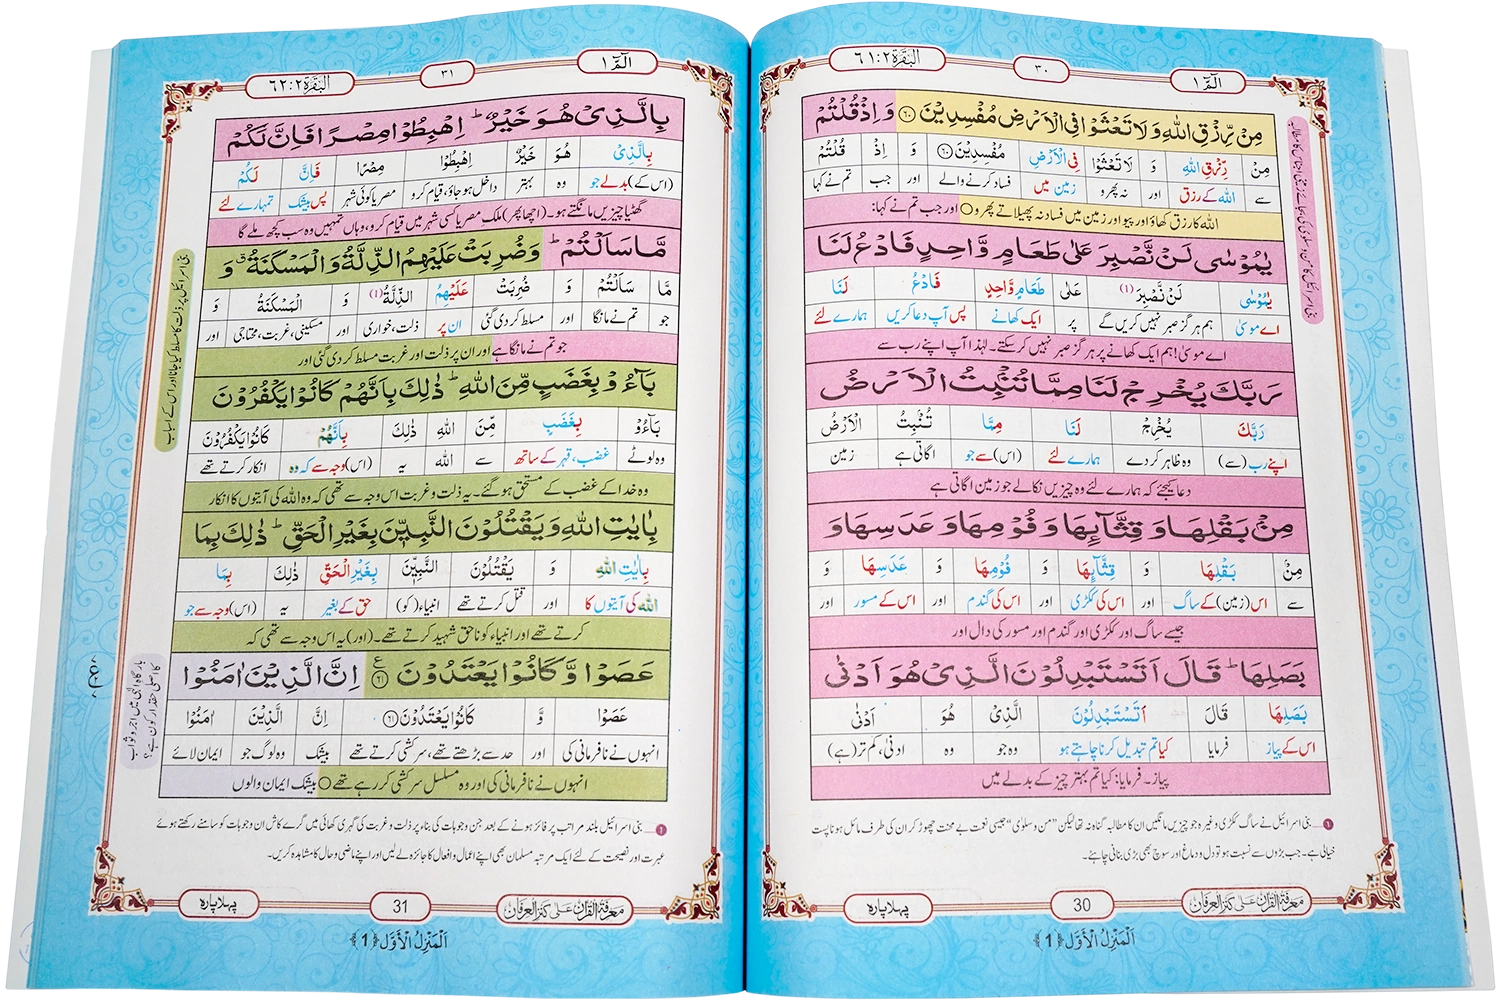 الٓمّٓ ١
٣٠
البقرة ٢:٦١
مِنۡ رِّزۡقِ اللّٰهِ وَلَا تَعۡثَوۡا فِی الۡاَرۡضِ مُفۡسِدِیۡنَ ﴿۶۰﴾ وَاِذۡ قُلۡتُمۡ
مِنۡ رِّزۡقِ اللّٰهِ وَ لَا تَعۡثَوۡا فِی الۡاَرۡضِ مُفۡسِدِیۡنَ ﴿۶۰﴾ وَ اِذۡ قُلۡتُمۡ
سے اللہ کے رزق اور نہ پھرو زمین میں فساد کرنے والے اور جب تم نے کہا
اللہ کا رزق کھاؤ اور پیو اور زمین میں فساد نہ پھیلاتے پھرو ○ اور جب تم نے کہا:
یٰمُوۡسٰی لَنۡ نَّصۡبِرَ عَلٰی طَعَامٍ وَّاحِدٍ فَادۡعُ لَنَا
یٰمُوۡسٰی لَنۡ نَّصۡبِرَ (1) عَلٰی طَعَامٍ وَّاحِدٍ فَادۡعُ لَنَا
اے موسیٰ ہم ہرگز صبر نہیں کریں گے پر ایک کھانے پس آپ دعا کریں ہمارے لئے
اے موسیٰ! ہم ایک کھانے پر ہرگز صبر نہیں کرسکتے۔ لہٰذا آپ اپنے رب سے
رَبَّكَ یُخۡرِجۡ لَنَا مِمَّا تُنۡۢبِتُ الۡاَرۡضُ
رَبَّكَ یُخۡرِجۡ لَنَا مِمَّا تُنۡۢبِتُ الۡاَرۡضُ
اپنے رب (سے) وہ ظاہر کردے ہمارے لئے (اس) سے جو اگاتی ہے زمین
دعا کیجئے کہ ہمارے لئے وہ چیزیں نکالے جو زمین اگاتی ہے
مِنۡۢ بَقۡلِهَا وَ قِثَّآئِهَا وَ فُوۡمِهَا وَ عَدَسِهَا وَ
مِنۡۢ بَقۡلِهَا وَ قِثَّآئِهَا وَ فُوۡمِهَا وَ عَدَسِهَا وَ
سے اس (زمین) کے ساگ اور اس کی ککڑی اور اس کی گندم اور اس کے مسور اور
جیسے ساگ اور ککڑی اور گندم اور مسور کی دال اور
بَصَلِهَا ؕ قَالَ اَتَسۡتَبۡدِلُوۡنَ الَّذِیۡ هُوَ اَدۡنٰی
بَصَلِهَا قَالَ اَتَسۡتَبۡدِلُوۡنَ الَّذِیۡ هُوَ اَدۡنٰی
اس کے پیاز فرمایا کیا تم تبدیل کرنا چاہتے ہو وہ جو وہ ادنیٰ، کم تر (ہے)
پیاز۔ فرمایا: کیا تم بہتر چیز کے بدلے میں
1 ... بنی اسرائیل نے ساگ ککڑی وغیرہ جو چیزیں مانگیں ان کا مطالبہ گناہ نہ تھا لیکن "من وسلویٰ" جیسی نعمت بے محنت چھوڑ کر ان کی طرف مائل ہونا پست
خیالی ہے۔ جب بڑوں سے نسبت ہو تو دل و دماغ اور سوچ بھی بڑی بنانی چاہئے۔
معرفۃ القرآن علی کنز العرفان
30
پہلا پارہ
اَلْمَنْزِلُ الْاَوَّل ﴿1﴾
الٓمّٓ ١
٣١
البقرة ٢:٦٢
بِالَّذِیۡ هُوَ خَیۡرٌ ؕ اِهۡبِطُوۡا مِصۡرًا فَاِنَّ لَكُمۡ
بِالَّذِیۡ هُوَ خَیۡرٌ اِهۡبِطُوۡا مِصۡرًا فَاِنَّ لَكُمۡ
(اس کے) بدلے جو وہ بہتر داخل ہوجاؤ، قیام کرو مصر یا کوئی شہر پس بیشک تمہارے لئے
گھٹیا چیزیں مانگتے ہو۔ (اچھا پھر) ملک مصر یا کسی شہر میں قیام کرو، وہاں تمہیں وہ سب کچھ ملے گا
مَّا سَاَلۡتُمۡ ؕ وَضُرِبَتۡ عَلَیۡهِمُ الذِّلَّةُ وَالۡمَسۡكَنَةُ ٭ وَ
مَّا سَاَلۡتُمۡ وَ ضُرِبَتۡ عَلَیۡهِمُ الذِّلَّةُ (1) وَ الۡمَسۡكَنَةُ وَ
جو تم نے مانگا اور مسلط کردی گئی ان پر ذلت، خواری اور مسکینی، غربت، محتاجی اور
جو تم نے مانگا ہے اور ان پر ذلت اور غربت مسلط کردی گئی اور
بَآءُوۡ بِغَضَبٍ مِّنَ اللّٰهِ ؕ ذٰلِكَ بِاَنَّهُمۡ كَانُوۡا یَكۡفُرُوۡنَ
بَآءُوۡ بِغَضَبٍ مِّنَ اللّٰهِ ذٰلِكَ بِاَنَّهُمۡ كَانُوۡا یَكۡفُرُوۡنَ
وہ لوٹے غضب، قہر کے ساتھ سے اللہ یہ (اس) وجہ سے کہ وہ انکار کرتے تھے
وہ خدا کے غضب کے مستحق ہوگئے۔ یہ ذلت و غربت اس وجہ سے تھی کہ وہ اللہ کی آیتوں کا انکار
بِاٰیٰتِ اللّٰهِ وَیَقۡتُلُوۡنَ النَّبِیّٖنَ بِغَیۡرِ الۡحَقِّ ؕ ذٰلِكَ بِمَا
بِاٰیٰتِ اللّٰهِ وَ یَقۡتُلُوۡنَ النَّبِیّٖنَ بِغَیۡرِ الۡحَقِّ ذٰلِكَ بِمَا
اللہ کی آیتوں کا اور قتل کرتے تھے انبیاء (کو) حق کے بغیر یہ (اس) وجہ سے جو
کرتے تھے اور انبیاء کو ناحق شہید کرتے تھے۔ (اور) یہ اس وجہ سے تھی کہ
عَصَوۡا وَّكَانُوۡا یَعۡتَدُوۡنَ ﴿۶۱﴾ اِنَّ الَّذِیۡنَ اٰمَنُوۡا
عَصَوۡا وَّ كَانُوۡا یَعۡتَدُوۡنَ ﴿۶۱﴾ اِنَّ الَّذِیۡنَ اٰمَنُوۡا
انہوں نے نافرمانی کی اور حد سے بڑھتے تھے، سرکشی کرتے تھے بیشک وہ لوگ جو ایمان لائے
انہوں نے نافرمانی کی اور وہ مسلسل سرکشی کر رہے تھے ○ بیشک ایمان والوں
بنی اسرائیل پر ذلت کا مسلط کیا جانا اور اس کے اسباب
بارگاہ الٰہی میں اجر و ثواب
کا اصلی حقدار کون ہے؟
1 ... بنی اسرائیل بلند مراتب پر فائز ہونے کے بعد جن وجوہات کی بناء پر ذلت و غربت کی گہری کھائی میں گرے کاش ان وجوہات کو سامنے رکھتے ہوئے
عبرت اور نصیحت کے لئے ایک مرتبہ مسلمان بھی اپنے اعمال و افعال کا جائزہ لے لیں اور اپنے ماضی و حال کا مشاہدہ کریں۔
معرفۃ القرآن علی کنز العرفان
31
پہلا پارہ
اَلْمَنْزِلُ الْاَوَّل ﴿1﴾